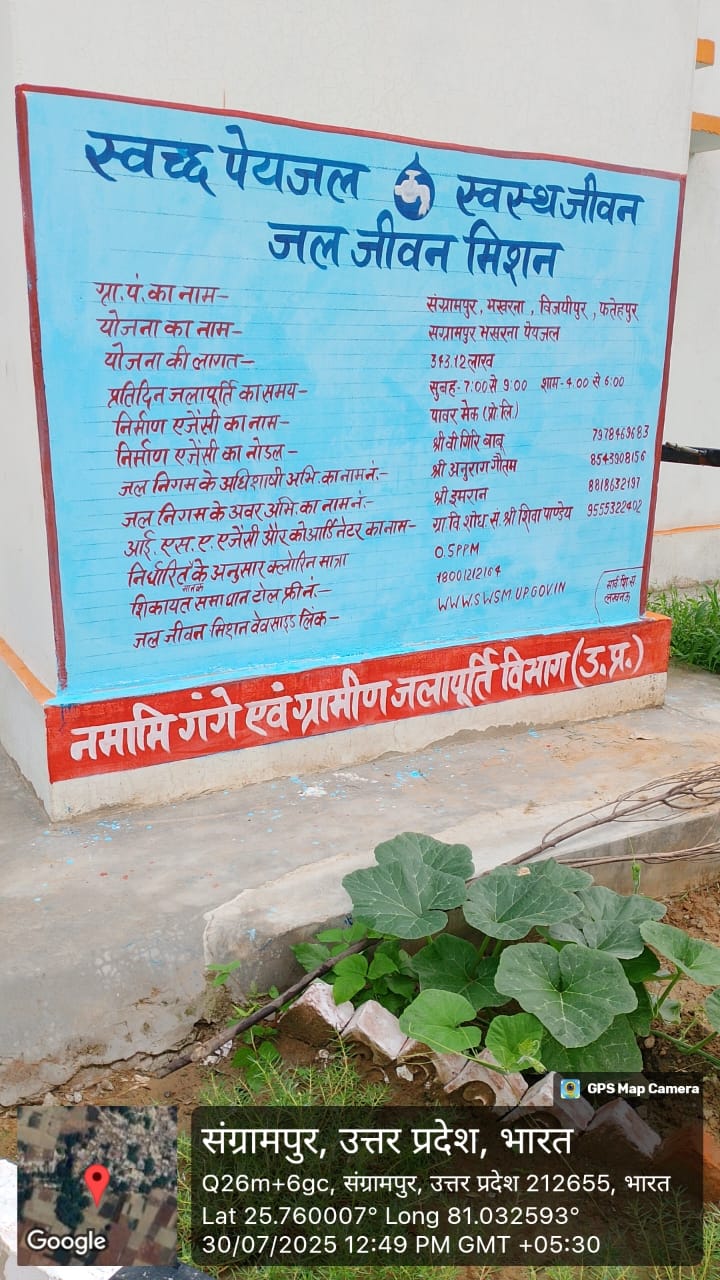 स्वच्छ पेयजल स्वस्थ जीवन
जल जीवन मिशन
ग्रा.पं.का नाम- संग्रामपुर, मखरना, विजयीपुर, फतेहपुर
योजना का नाम- सग्रामपुर मखरना पेयजल
योजना की लागत- 343.12 लाख
प्रतिदिन जलापूर्ति का समय- सुबह-7:00 से 9:00 शाम-4.00 से 6:00
निर्माण एजेंसी का नाम- पावर मेक (प्रो.लि.)
निर्माण एजेंसी का नोडल- श्री वी गिरि बाबू 7978469683
जल निगम के अधिशाषी अभि. का नाम नं.- श्री अनुराग गौतम 8543908156
जल निगम के अवर अभि. का नाम नं.- श्री इमरान 8818632197
आई.एस.ए. एजेंसी और कोआर्डिनेटर का नाम- ग्रा वि शोध सं. श्री शिवा पाण्डेय 9555322402
निर्धारित मानक के अनुसार क्लोरिन मात्रा 0.5PPM
शिकायत समाधान टोल फ्री नं.- 18001212164
जल जीवन मिशन वेवसाइड लिंक- WWW.SWSM.UP.GOV.IN
लखनऊ
नमामि गंगे एवं ग्रामीण जलापूर्ति विभाग (उ.प्र.)
GPS Map Camera
संग्रामपुर, उत्तर प्रदेश, भारत
Q26m+6gc, संग्रामपुर, उत्तर प्रदेश 212655, भारत
Lat 25.760007° Long 81.032593°
30/07/2025 12:49 PM GMT +05:30
Google